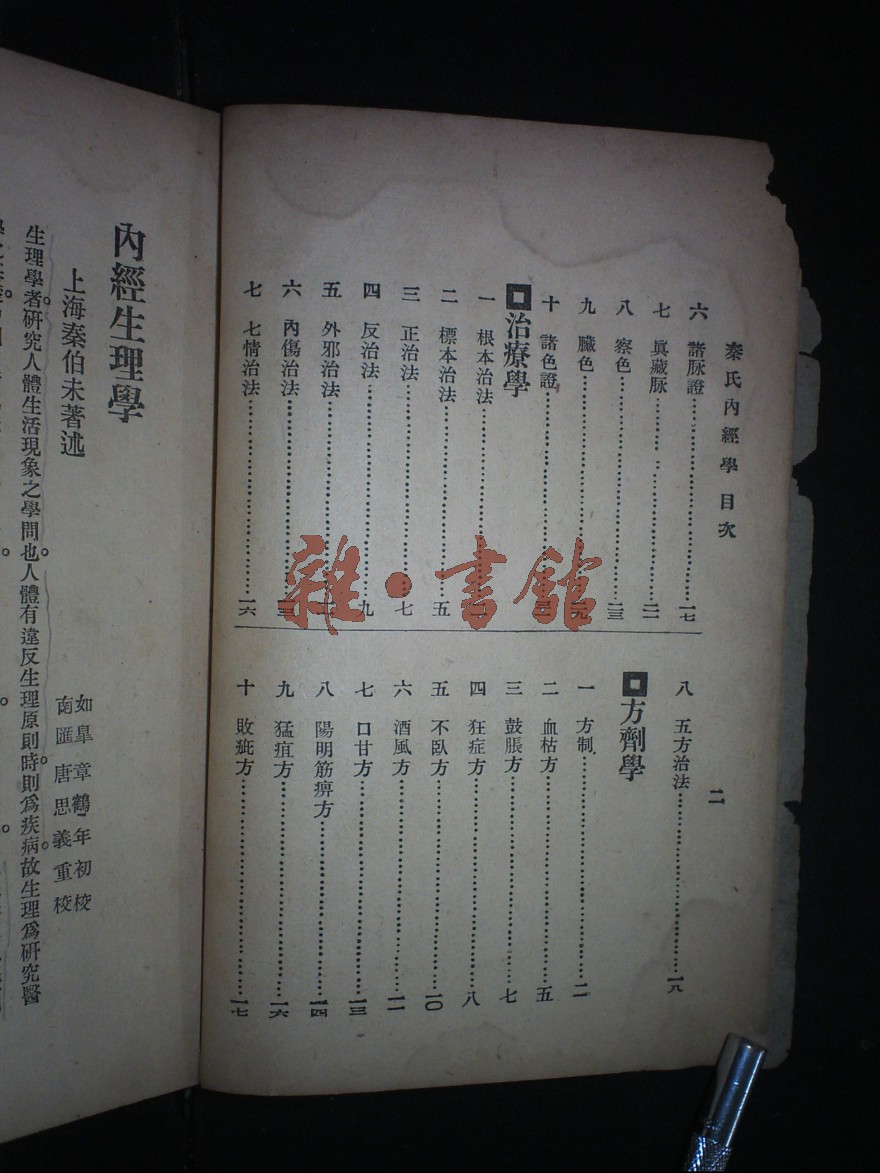 秦氏內經學 目次
六 諸脉證……一七
七 眞藏脉……二一
八 察色……二三
九 臟色……二九
十 諸色證
治療學
一 根本治法
二 標本治法……五
三 正治法……七
四 反治法……九
五 外邪治法
六 內傷治法……一三
七 七情治法……一六
八 五方治法……一八
方劑學
一 方制……二
二 血枯方……五
三 鼓脹方……七
四 狂症方……八
五 不臥方……一〇
六 酒風方……一一
七 口甘方……一三
八 陽明筋痹方……一四
九 猛疽方……一六
十 敗疵方……一七
二
內經生理學
上海秦伯未著述
如臯章鶴年初校
南匯唐思義重校
生理學者研究人體生活現象之學問也。人體有違反生理原則時則爲疾病。故生理爲研究醫
雜·書館